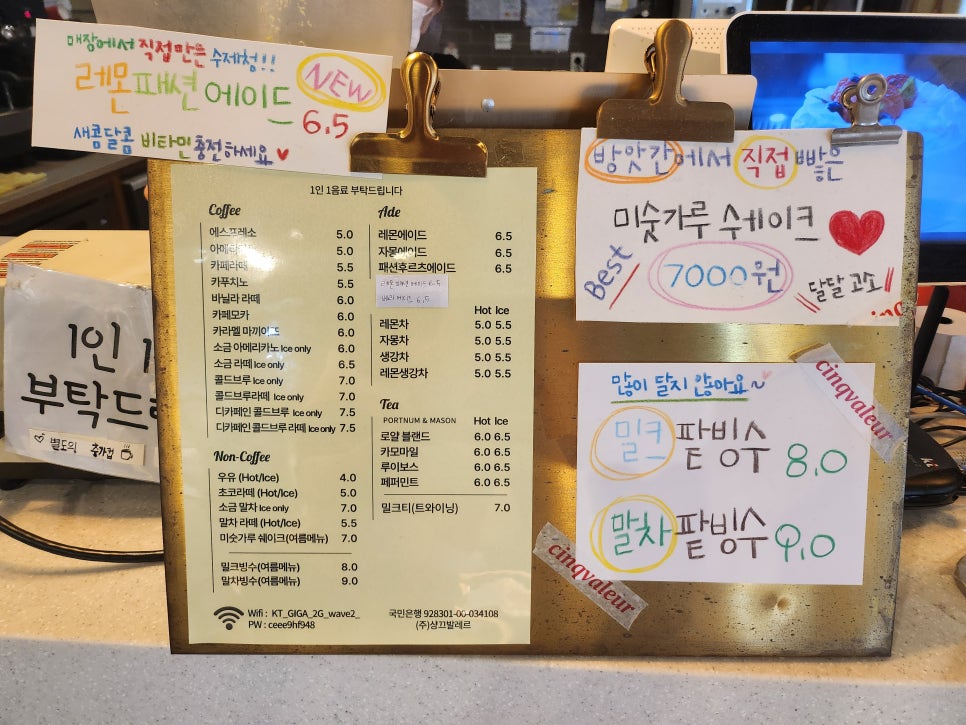 매장에서 직접만든 수제청!!
레몬패션에이드 NEW
6.5
새콤달콤 비타민충전하세요
1인 1음료 부탁드립니다
Coffee
에스프레소 5.0
아메리카노 5.0
카페라떼 5.5
카푸치노 5.5
바닐라 라떼 6.0
카페모카 6.0
카라멜 마끼아또 6.0
소금 아메리카노 Ice only 6.0
소금 라떼 Ice only 6.5
콜드브루 Ice only 7.0
콜드브루라떼 Ice only 7.0
디카페인 콜드브루 Ice only 7.5
디카페인 콜드브루 라떼 Ice only 7.5
Non-Coffee
우유 (Hot/Ice) 4.0
초코라떼 (Hot/Ice) 5.0
소금 말차 Ice only 7.0
말차 라떼 (Hot/Ice) 5.5
미숫가루 쉐이크(여름메뉴) 7.0
밀크빙수(여름메뉴) 8.0
말차빙수(여름메뉴) 9.0
Ade
레몬에이드 6.5
자몽에이드 6.5
패션후르츠에이드 6.5
레몬 패션 에이드 6.5
에이드 6.5
Hot Ice
레몬차 5.0 5.5
자몽차 5.0 5.5
생강차 5.0 5.5
레몬생강차 5.0 5.5
Tea
PORTNUM & MASON Hot Ice
로얄 블랜드 6.0 6.5
카모마일 6.0 6.5
루이보스 6.0 6.5
페퍼민트 6.0 6.5
밀크티(트와이닝) 7.0
Wifi : KT_GIGA_2G_wave2_
PW : ceee9hf948
국민은행 928301-00-034108
(주)상끄발레르
방앗간에서 직접 빻은
미숫가루 쉐이크
Best
7000원
달달 고소
많이 달지 않아요~
밀크팥빙수 8.0
말차팥빙수 9.0
cinqvaleur
cinqvaleur
1인 1
부탁드
별도의 종이컵